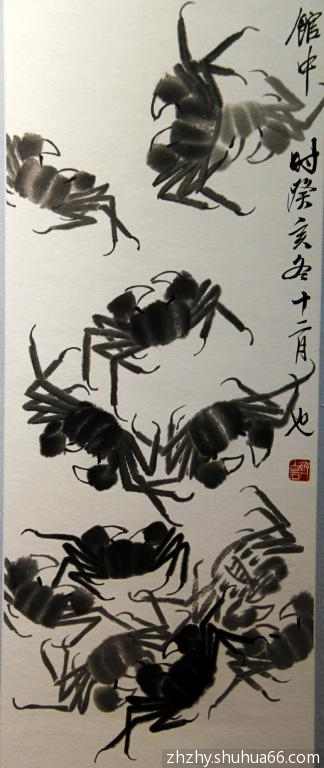 館中
时癸亥冬十二月也
zhzhy.shuhua66.com